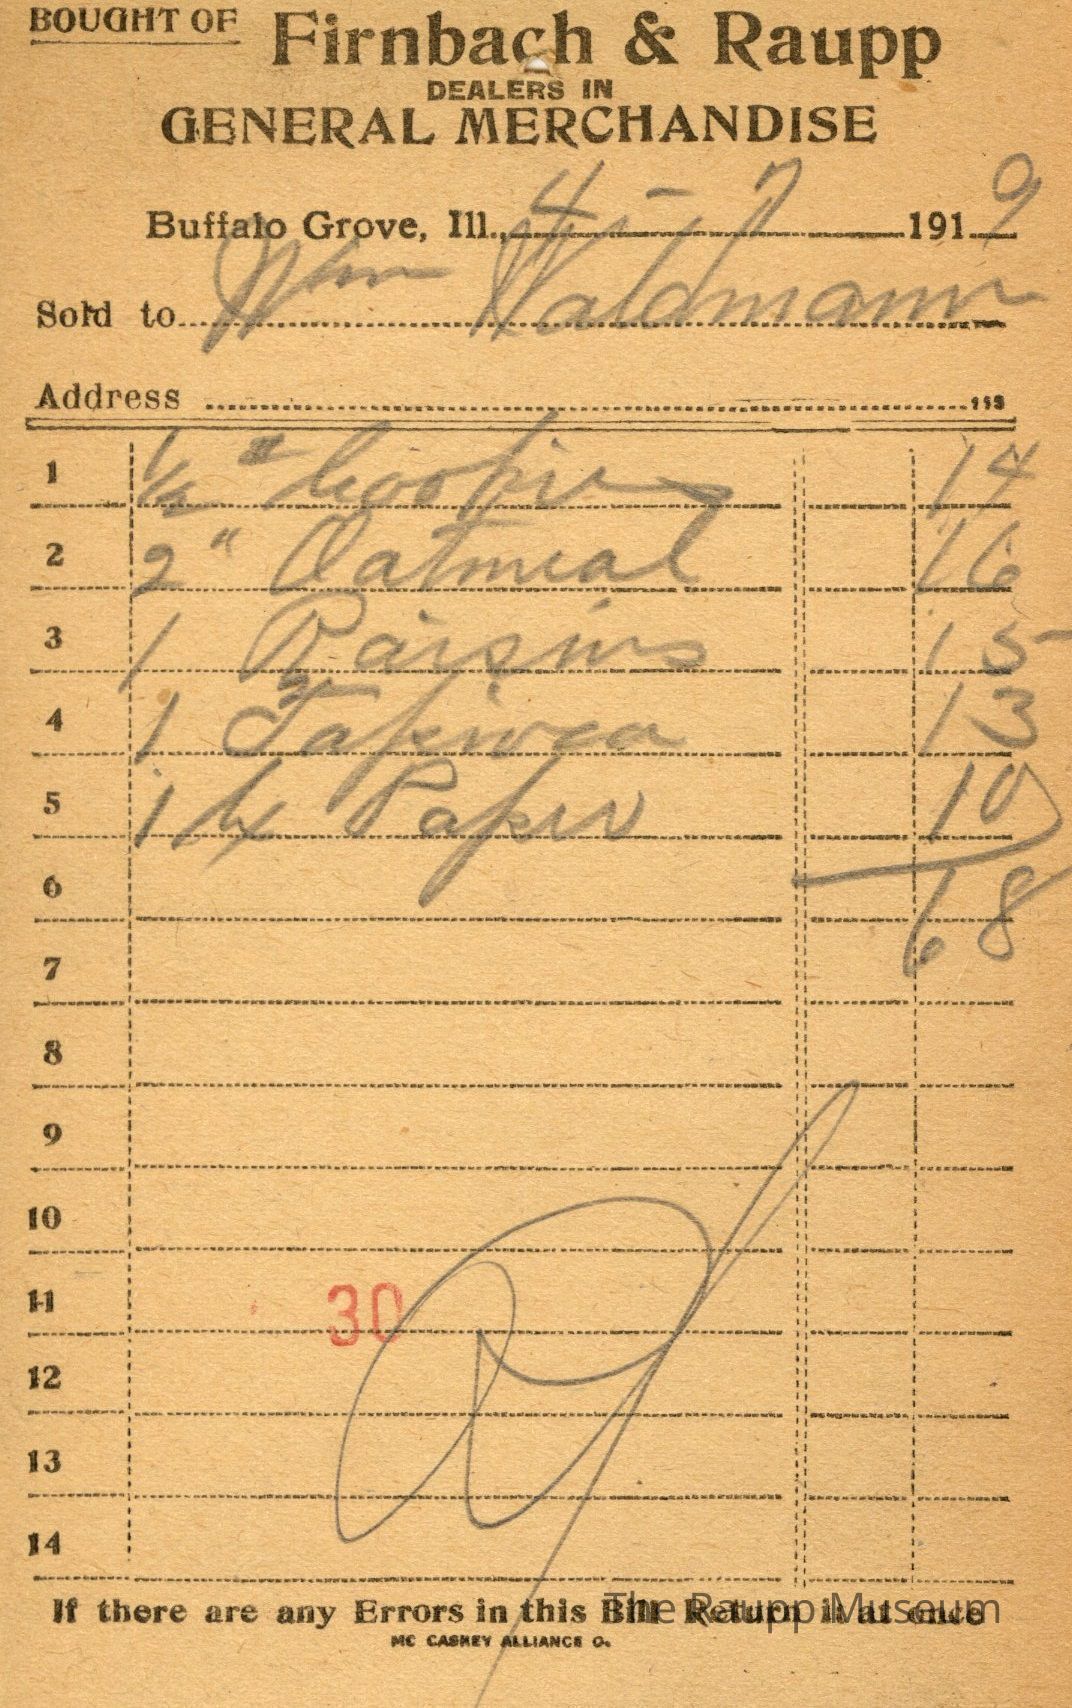 BOUGHT OF Firnbach & Raupp
DEALERS IN
GENERAL MERCHANDISE
Buffalo Grove, Ill., 4-7 1919
Sold to Wm Waldmann
Address
1 1/2 " 14
2 2 " Oatmeal 16
3 1 Raisins 15
4 1 Tapioca 13
5 1 Paper 10
6 68
7
8
9
10
11 30
12
13
14
If there are any Errors in this Bill Return it at once
The Raupp Museum
MC CASKEY ALLIANCE O.